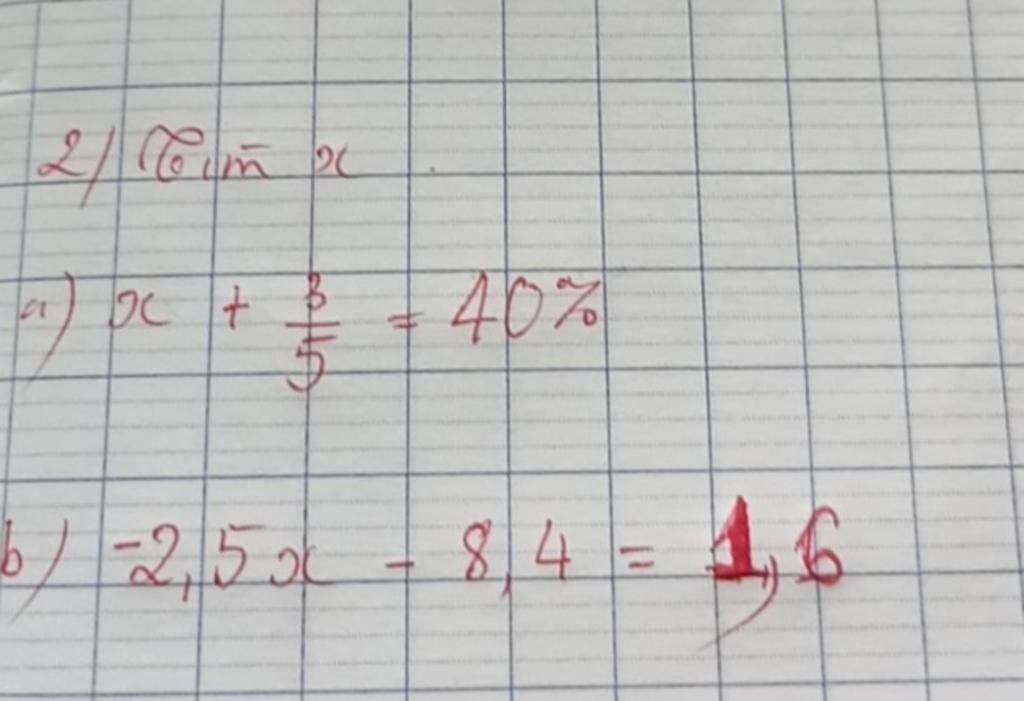 2) Tìm x
a) x + 3/5 = 40%
b) -2,5x - 8,4 = 1,6